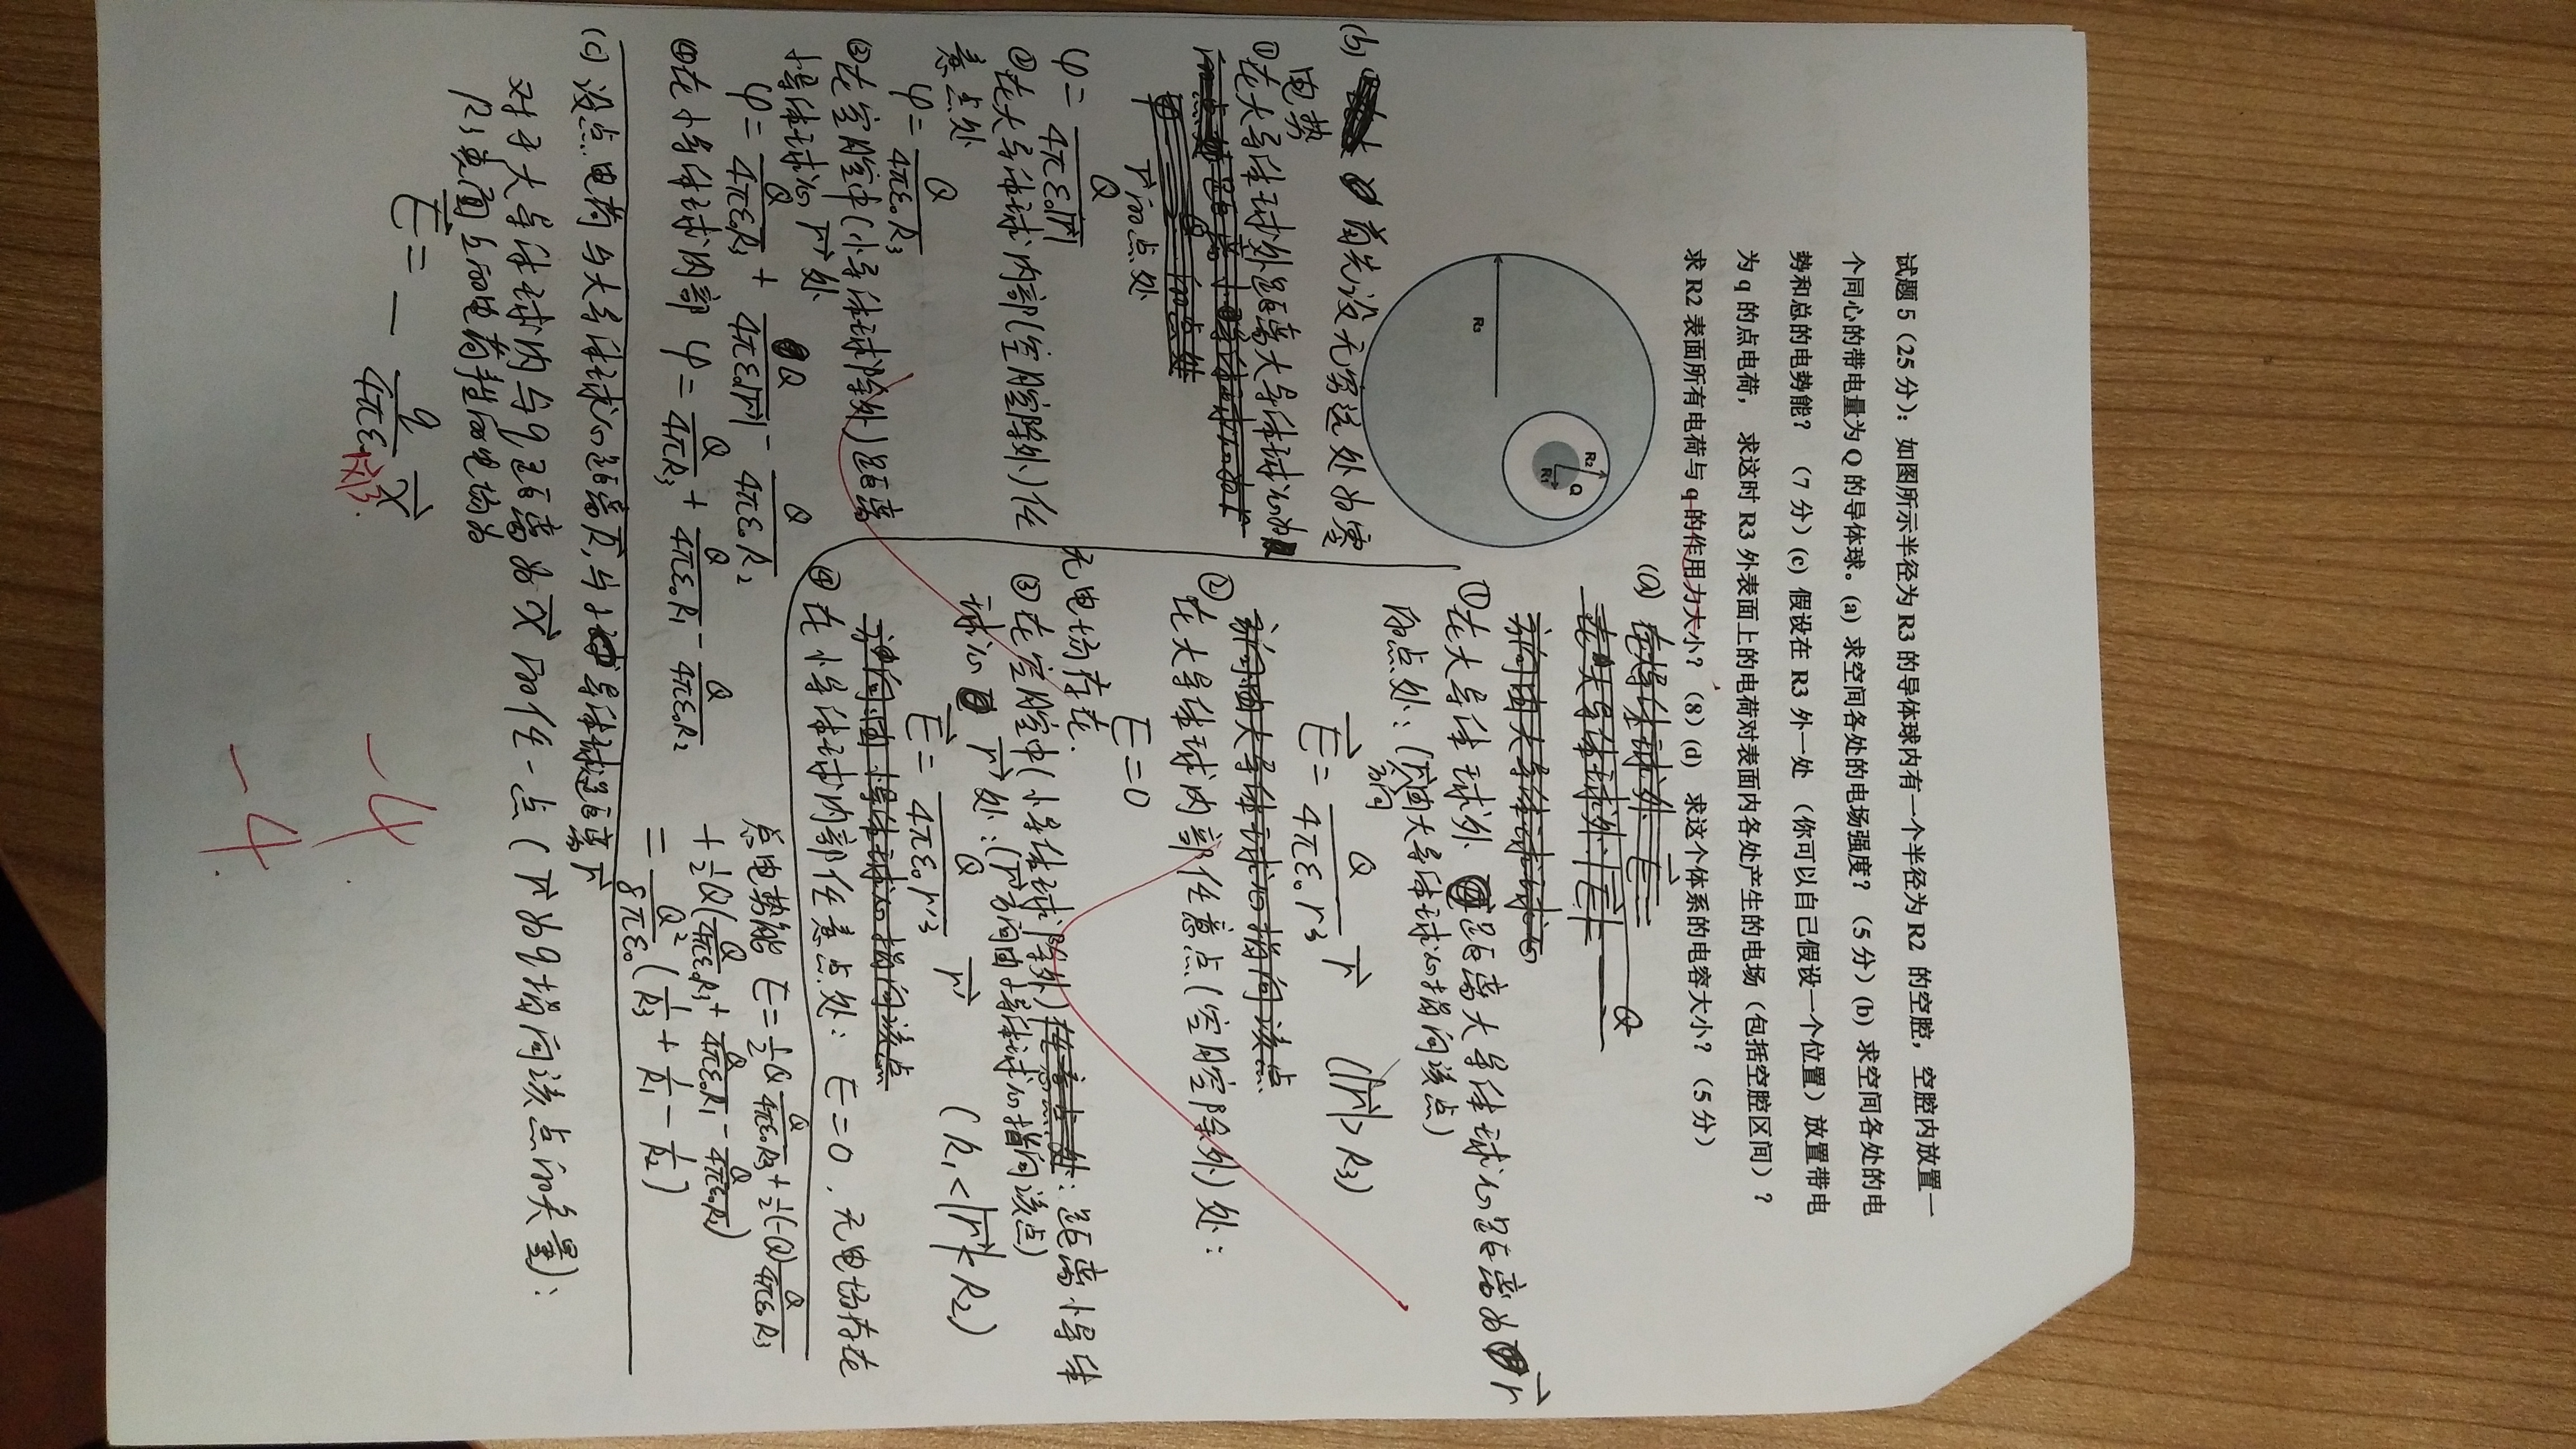 试题 5（25 分）：如图所示半径为 R3 的导体球内有一个半径为 R2 的空腔，空腔内放置一
个同心的带电量为 Q 的导体球。(a) 求空间各处的电场强度？（5 分）(b) 求空间各处的电
势和总的电势能？ （7 分）(c) 假设在 R3 外一处 （你可以自己假设一个位置）放置带电
为 q 的点电荷， 求这时 R3 外表面上的电荷对表面内各处产生的电场（包括空腔区间）？
求 R2 表面所有电荷与 q 的作用力大小？（8）(d) 求这个体系的电容大小？（5 分）
R2
Q
R1
R3
(a)
①在大导体球外 距离大导体球心距离为 r⃗
的点处：(r⃗方向由大导体球心指向该点)
E⃗ = Q/(4πε₀r³) r⃗ (|r⃗|> R3)
②在大导体球内部任意点(空腔除外)处：
E=0
无电场存在.
③在空腔中(小导体球除外)：距离小导体
球心 r⃗' 处：(r⃗'方向由小导体球心指向该点)
E⃗ = Q/(4πε₀r'³) r⃗' (R₁<|r⃗'|<R₂)
④在小导体球内部任意点处： E=0 ，无电场存在
(b) 首先设无穷远处为零
电势
①在大导体球外距离大导体球心为
r⃗的点处
φ= Q/(4πε₀|r⃗|)
②在大导体球内部(空腔除外)任
意点处
φ= Q/(4πε₀R₃)
③在空腔中(小导体球除外)距离
小导体球心 r⃗' 处
φ= Q/(4πε₀R₃) + Q/(4πε₀|r⃗'|) - Q/(4πε₀R₂)
④在小导体球内部 φ= Q/(4πR₃) + Q/(4πε₀R₁) - Q/(4πε₀R₂)
总电势能 E= ½Q Q/(4πε₀R₃) + ½(-Q) Q/(4πε₀R₃)
+ ½Q(Q/(4πε₀R₃) + Q/(4πε₀R₁) - Q/(4πε₀R₂))
= Q²/(8πε₀) (1/R₃ + 1/R₁ - 1/R₂)
(c) 设点电荷与大导体球心距离R⃗,与小导体球心距离r⃗
对于大导体球内与q距离为x⃗的任一点(r⃗为q指向该点的矢量)：
R3表面上的电荷产生的电场为
E⃗ = - q/(4πε₀|x⃗|³) x⃗
-4.
-4.